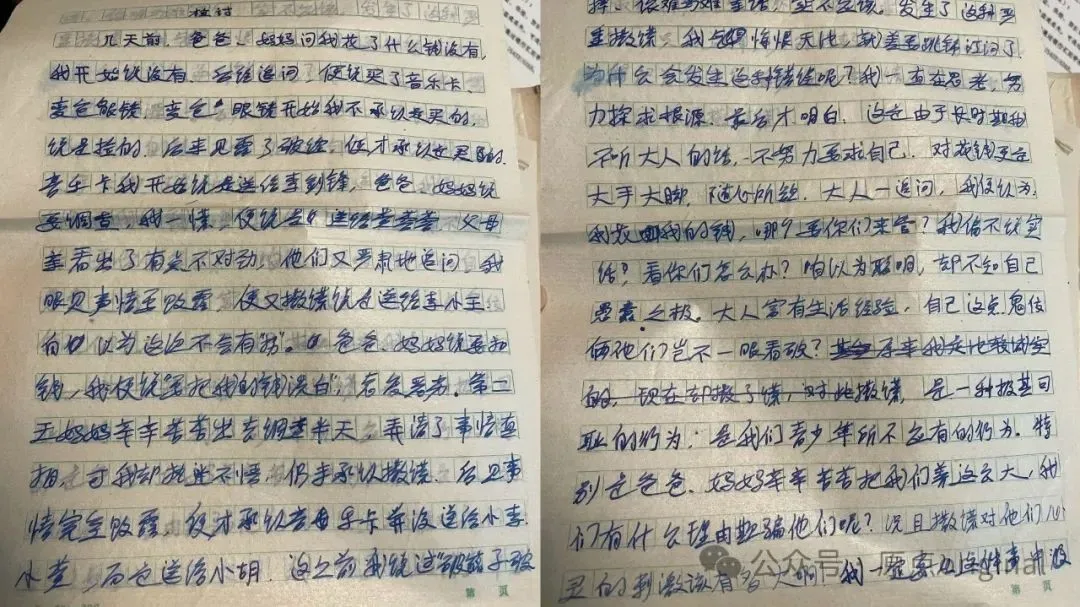 检讨
几天前,爸爸、妈妈问我花了什么钱没有,
我开始说没有,后经追问,便说买了音乐卡、
变色眼镜,变色眼镜开始我不承认是买的,
说是捡的,后来见露了破绽,便才承认是买的。
音乐卡我开始说是送给李剑锋,爸爸、妈妈说
要调查,我一慌,便说是送给 父母
亲看出了有点不对劲,他们又严肃地追问,我
眼见事情要败露,便又撒谎说是送给李小
自以为这次不会有"错"。爸爸、妈妈说要
钱,我便说"要把我的钱 第二
天妈妈辛辛苦苦出去调查半天,弄清了事情真
相,可我却执迷不悟,仍未承认撒谎。后见事
情完全败露,便才承认音乐卡并没送给小李、
小 而是送给小胡。这之前我说过
择 实不应该,发生了这种严
重撒谎,我
为什么会发生这种错误呢?我一直在思考,努
力探求根源,最后才明白,这是由于长时期我
不听大人的话,不努力要求自己,对花钱更是
大手大脚,随心所欲,大人一追问,我便认为
我花我的钱,哪个要你们来管?我偏不说实
话?看你们怎么办?自以为聪明,却不知自己
愚蠢之极。大人富有生活经验,自己这点鬼伎
俩他们岂不一眼看破?
的,现在却撒了谎,对此撒谎,是一种极其可
耻的行为,是我们青少年所不应有的行为。特
别是爸爸、妈妈辛辛苦苦把我们养这么大,我
们有什么理由欺骗他们呢?况且撒谎对他们心
灵的刺激该有多大啊 我一定要从这件事中汲
第 页
第 页
公众号